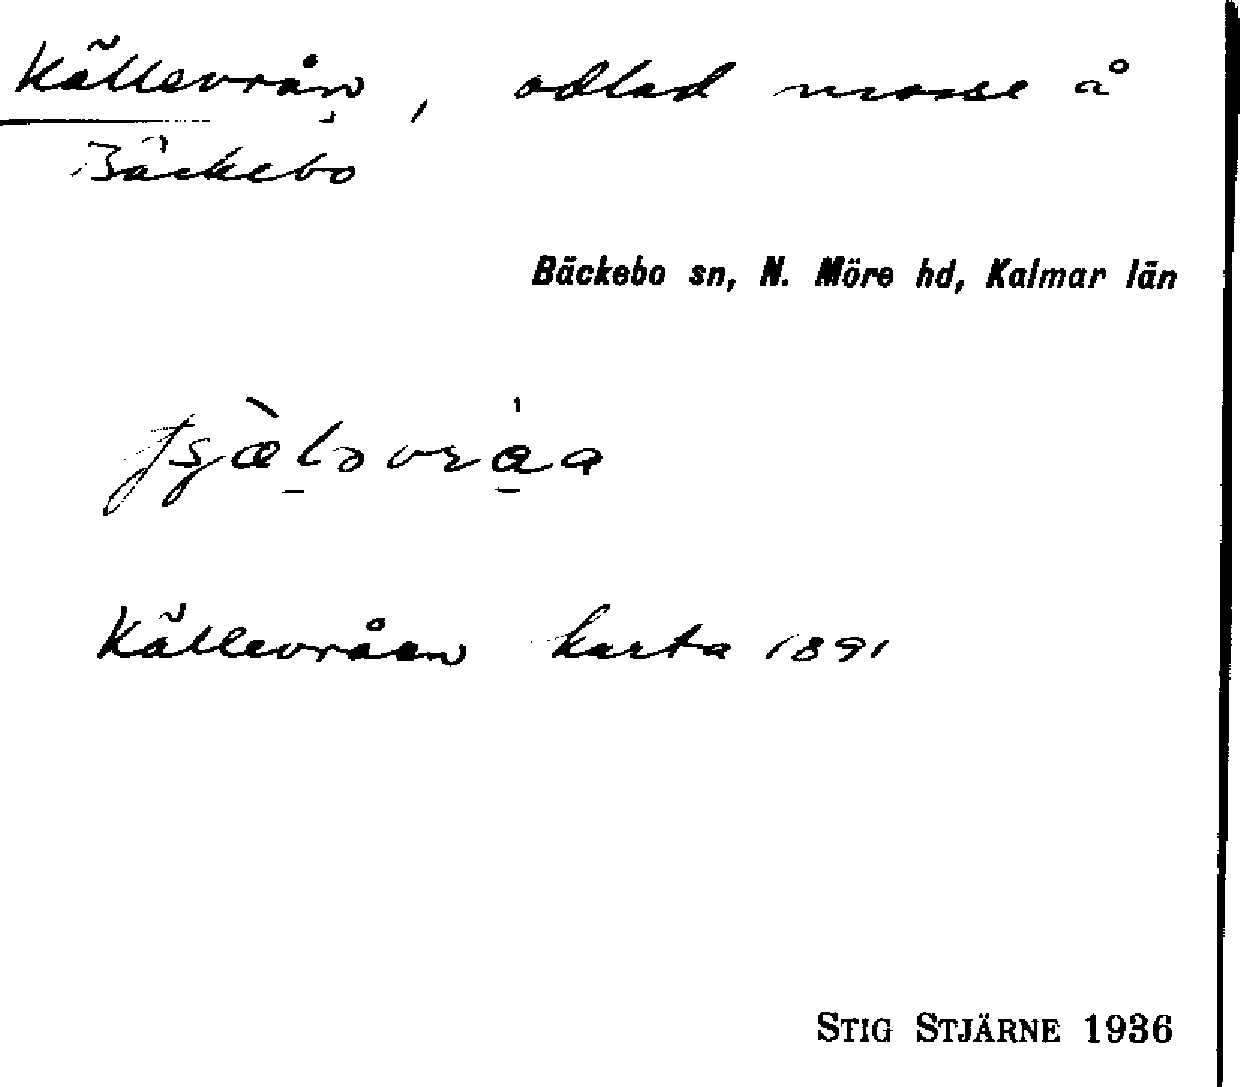 Källevrån, odlad mosse å
Bäckebo
Bäckebo sn, N. Möre hd, Kalmar län
Källevråen karta 1891
STIG STJÄRNE 1936